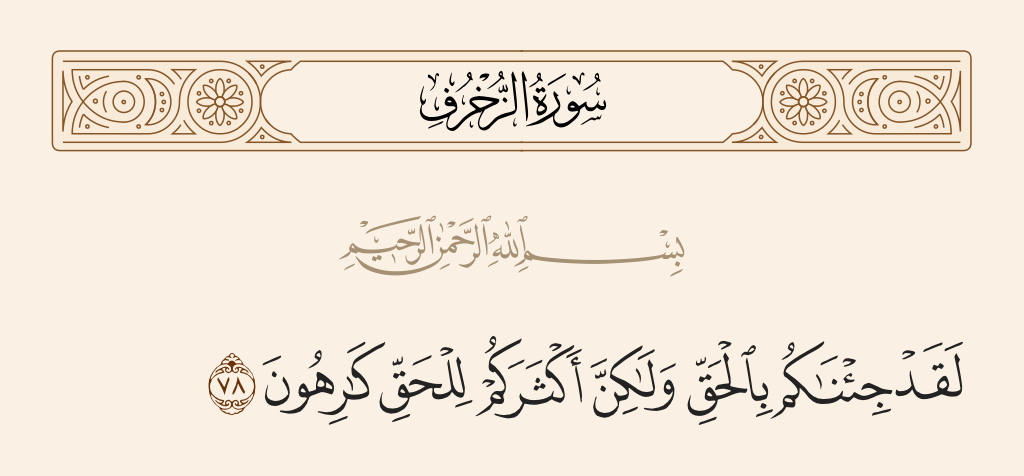 سُورَةُ الزُّخْرُفِ
بِسْمِ ٱللَّهِ ٱلرَّحْمَٰنِ ٱلرَّحِيمِ
لَقَدْ جِئْنَـٰكُم بِٱلْحَقِّ وَلَـٰكِنَّ أَكْثَرَكُمْ لِلْحَقِّ كَـٰرِهُونَ ٧٨